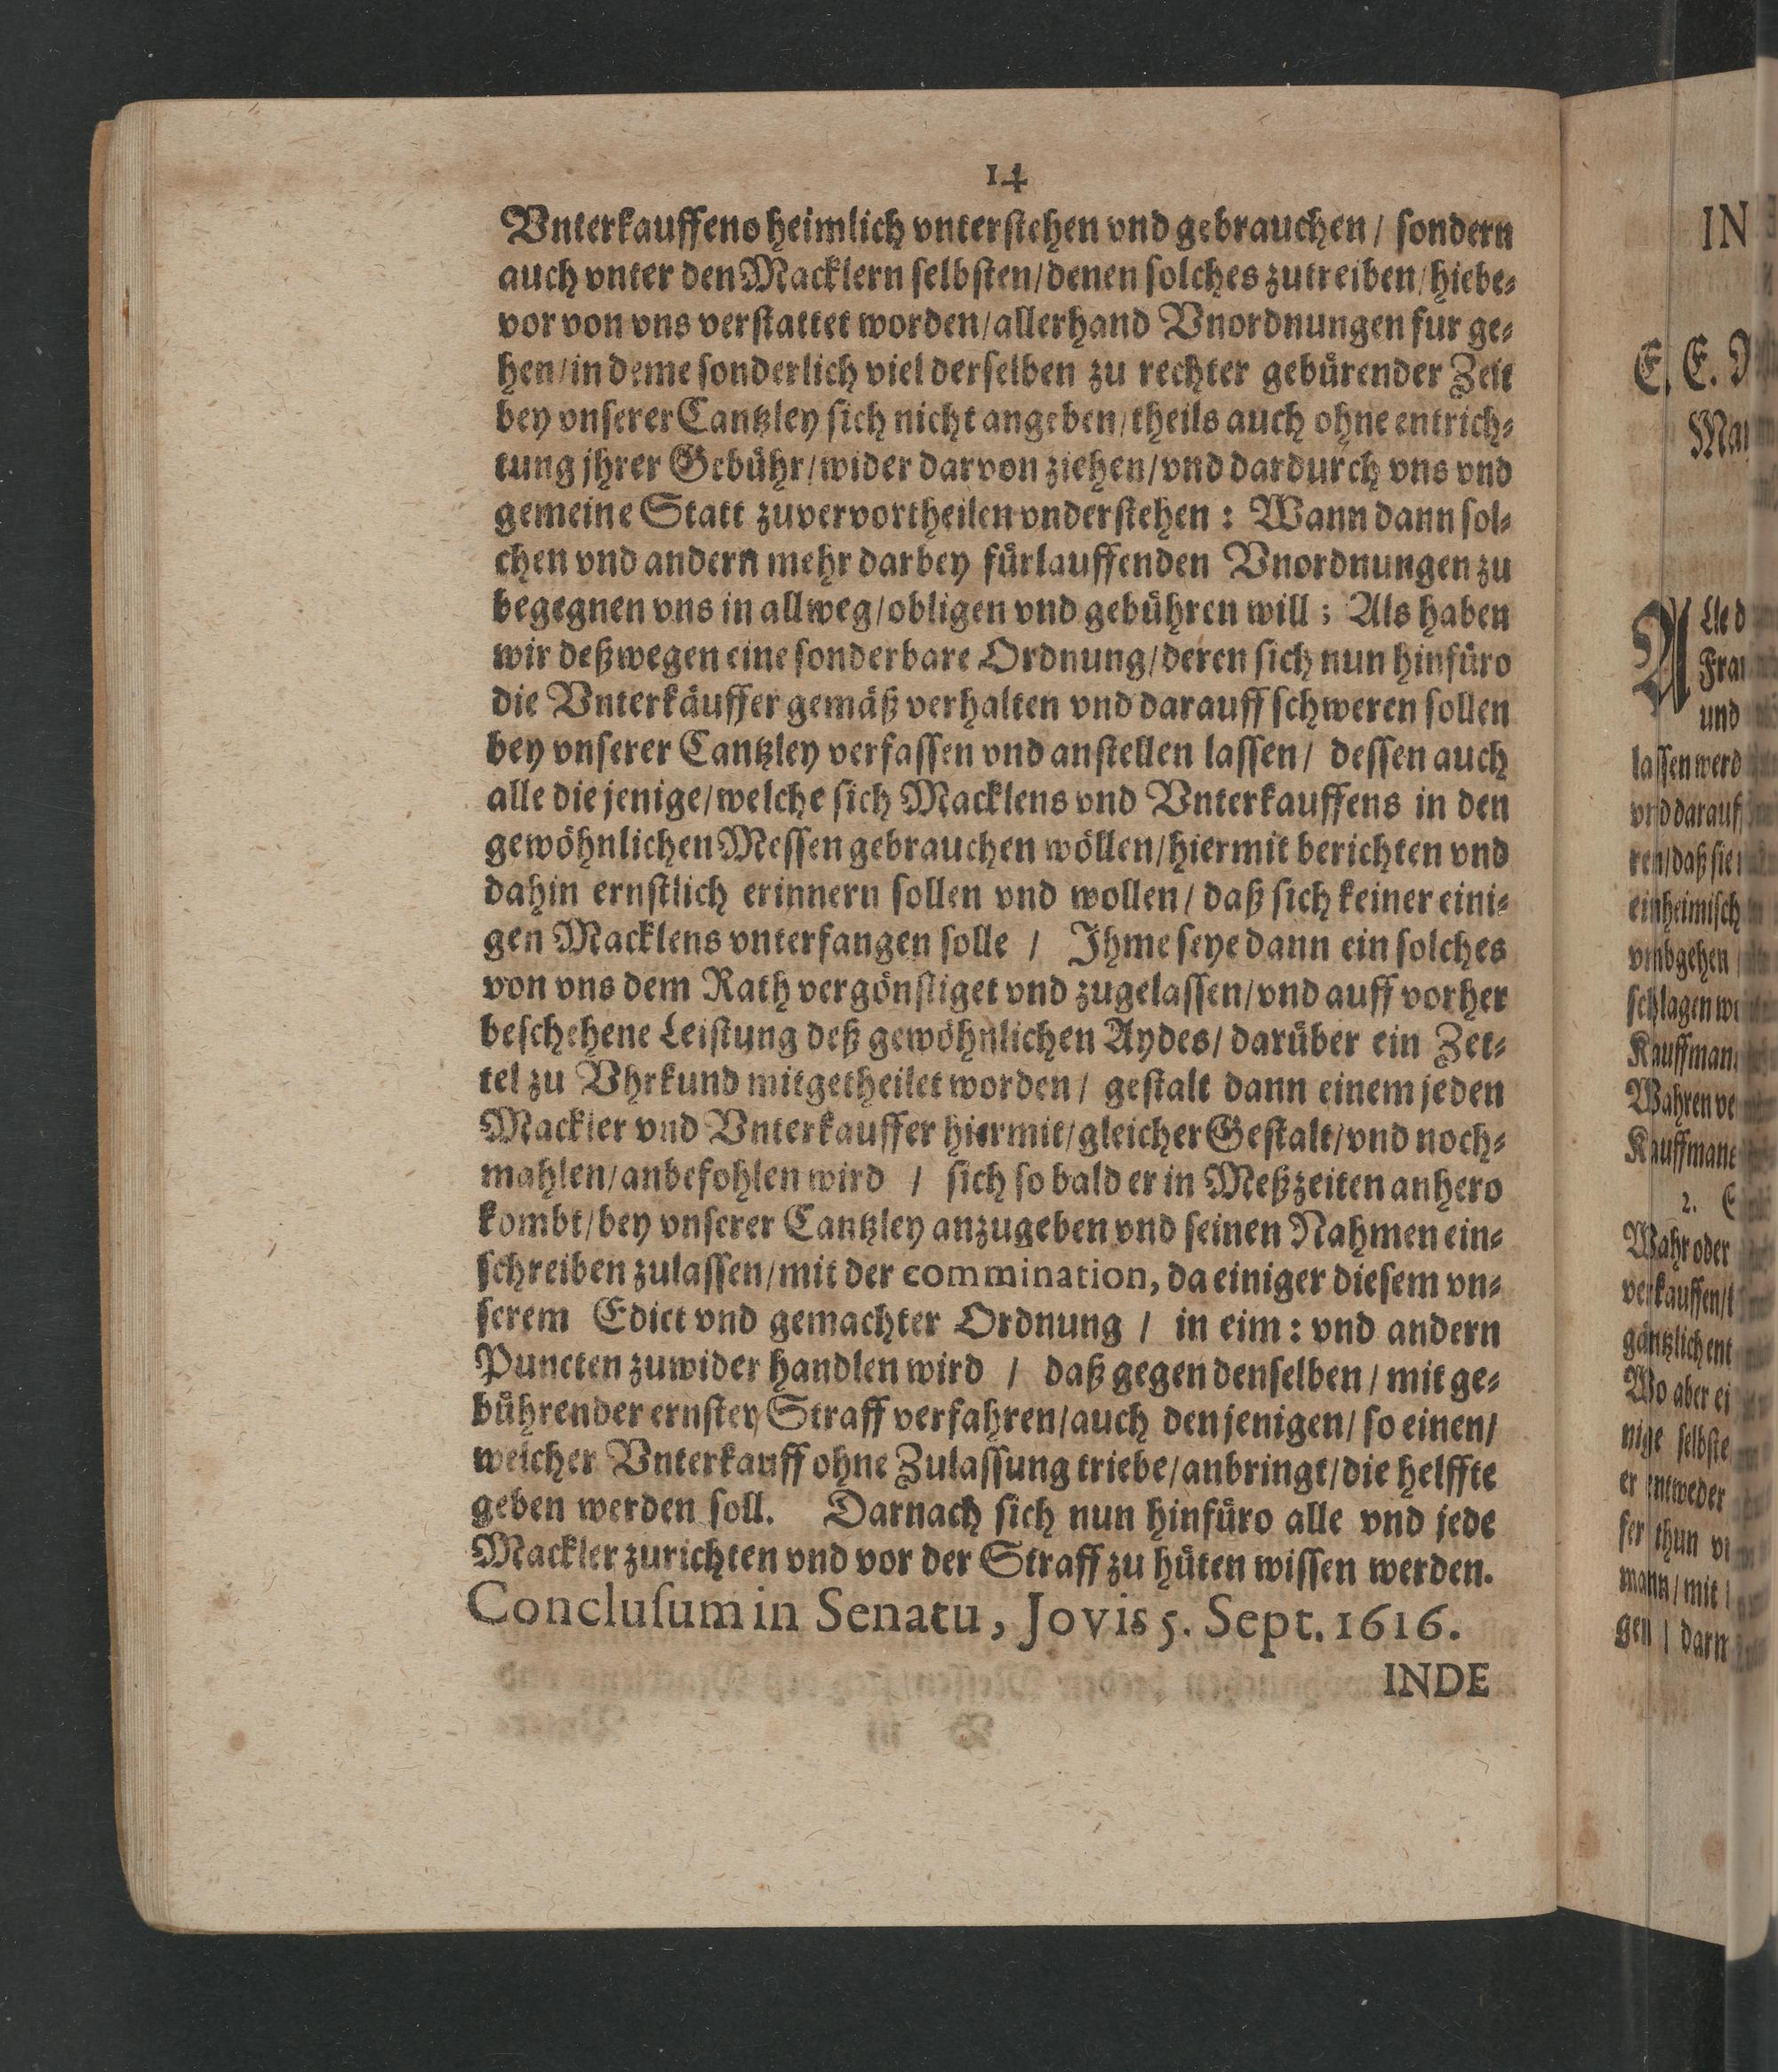 14
Vnterkauffens heimlich vnterstehen vnd gebrauchen / sondern
auch vnter den Macklern selbsten/denen solches zutreiben/hiebe⸗
vor von vns verstattet worden/allerhand Vnordnungen fur ge⸗
hen/in deme sonderlich viel derselben zu rechter gebürender Zeit
bey vnserer Cantzley sich nicht angeben/theils auch ohne entrich⸗
tung jhrer Gebühr/wider darvon ziehen/vnd dardurch vns vnd
gemeine Statt zuvervortheilen vnderstehen : Wann dann sol⸗
chen vnd andern mehr darbey fürlauffenden Vnordnungen zu
begegnen vns in allweg/obligen vnd gebühren will ; Als haben
wir deßwegen eine sonderbare Ordnung/deren sich nun hinfüro
die Vnterkäuffer gemäß verhalten vnd darauff schweren sollen
bey vnserer Cantzley verfassen vnd anstellen lassen / dessen auch
alle die jenige/welche sich Macklens vnd Vnterkauffens in den
gewöhnlichen Messen gebrauchen wöllen/hiermit berichten vnd
dahin ernstlich erinnern sollen vnd wollen / daß sich keiner eini⸗
gen Macklens vnterfangen solle / Ihme seye dann ein solches
von vns dem Rath vergönstiget vnd zugelassen/vnd auff vorher
beschehene Leistung deß gewöhnlichen Aydes / darüber ein Zet⸗
tel zu Vhrkund mitgetheilet worden / gestalt dann einem jeden
Mackler vnd Vnterkauffer hiermit/gleicher Gestalt/vnd noch⸗
mahlen/anbefohlen wird / sich so bald er in Meßzeiten anhero
kombt/bey vnserer Cantzley anzugeben vnd seinen Nahmen ein⸗
schreiben zulassen/mit der commination, da einiger diesem vn⸗
serem Edict vnd gemachter Ordnung / in eim : vnd andern
Puncten zuwider handlen wird / daß gegen denselben / mit ge⸗
bührender ernster Straff verfahren/auch den jenigen / so einen/
welcher Vnterkauff ohne Zulassung triebe/anbringt/die helffte
geben werden soll. Darnach sich nun hinfüro alle vnd jede
Mackler zurichten vnd vor der Straff zu hüten wissen werden.
Conclusum in Senatu, Jovis 5. Sept. 1616.
INDE
IN
E. E.
Lle d
und
lassen werd
vnd darauf
ren/daß sie
einheimisch
vmbgehen
schlagen
Kauffman
Wahren ve
Kauffmane
2.
Wahr oder
verkauffen/
gäntzlich ent
Wo aber ei
nige selbste
er entweder
ser thun
mann / mit
gen / darn